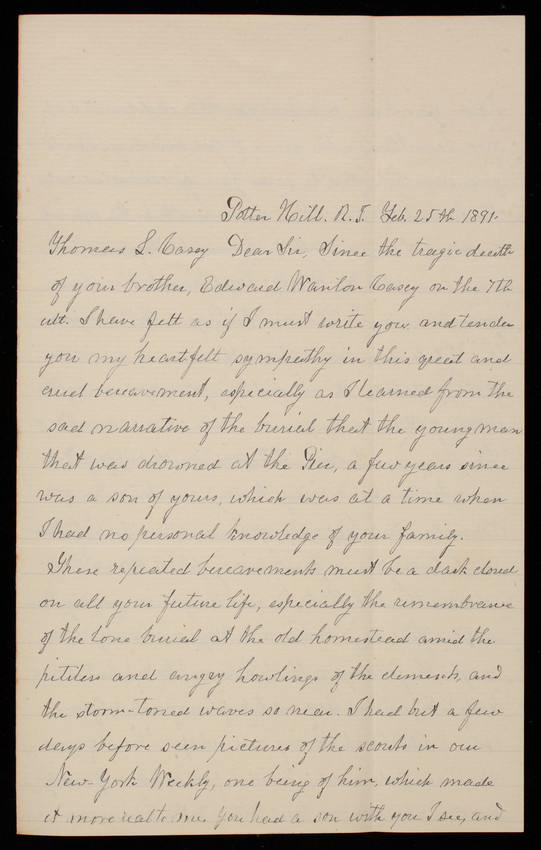 Potter Hill. R.I. Feb. 25th 1891.
Thomas L. Casey Dear Sir, Since the tragic death
of your brother, Edward Wanton Casey on the 7th
ult. I have felt as if I must write you and tender
you my heartfelt sympathy in this great and
cruel bereavement, especially as I learned from the
sad narrative of the burial that the young man
that was drowned at the Pier, a few years since
was a son of yours, which was at a time when
I had no personal knowledge of your family.
These repeated bereavements must be a dark cloud
on all your future life, especially the remembrance
of the lone burial at the old homestead amid the
pitiless and angry howlings of the elements, and
the storm-toned waves so near. I had but a few
days before seen pictures of the scouts in our
New-York Weekly, one being of him, which made
it more real to me. You had a son with you I see, and